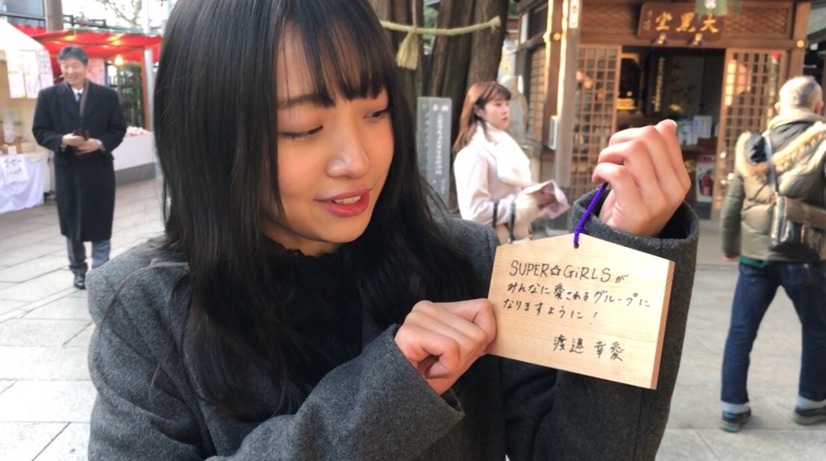 大黒堂
SUPER☆GiRLSが
みんなに愛されるグループに
なりますように！
渡邉 幸愛